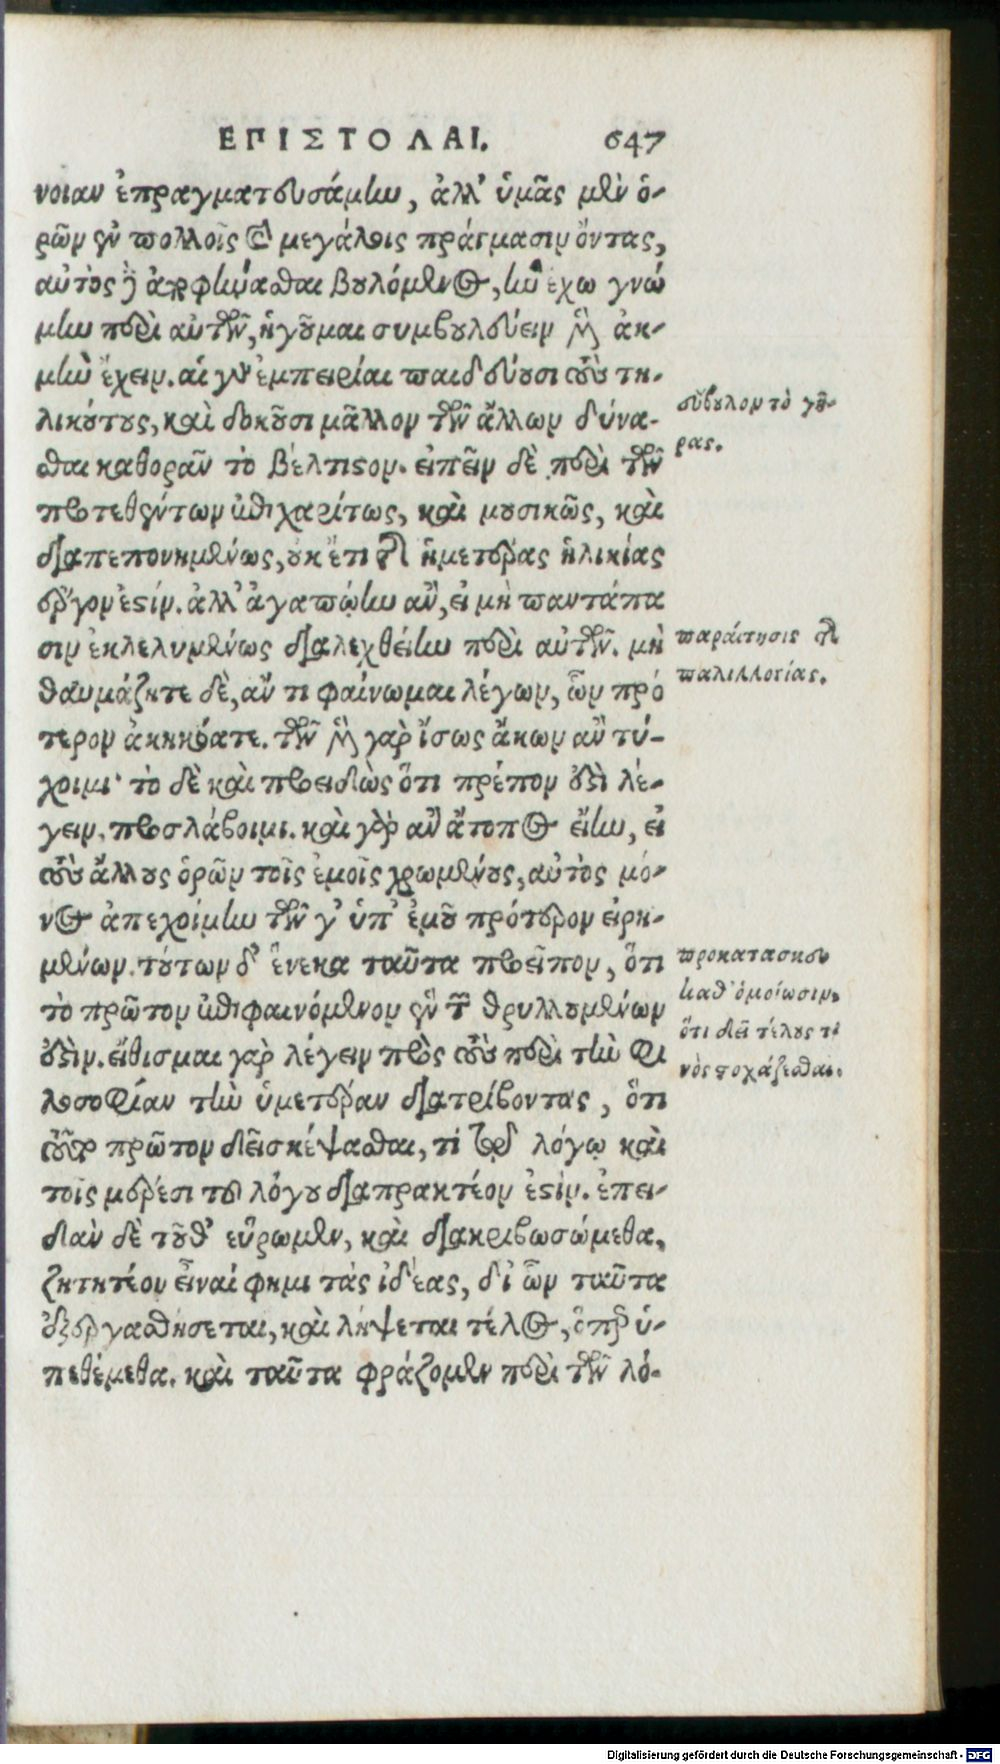 ΕΠΙΣΤΟΛΑΙ. 647
νοιαν ἐπραγματευσάμην, ἀλλ' ὑμᾶς μὲν ὁ-
ρῶν ἐν πολλοῖς καὶ μεγάλοις πράγμασιν ὄντας,
αὐτὸς δ' ἀποφήνασθαι βουλόμενος, ἣν ἔχω γνώ
μην περὶ αὐτῶν, ἡγοῦμαι συμβουλεύειν μὲν ἀκ-
μὴν ἔχειν. αἱ γὰρ ἐμπειρίαι παιδεύουσι τοὺς τη-
λικούτους, καὶ δοκοῦσι μᾶλλον τῶν ἄλλων δύνα-
σθαι καθορᾶν τὸ βέλτιστον. εἰπεῖν δὲ περὶ τῶν
προτεθέντων ἐπιχαρίτως, καὶ μουσικῶς, καὶ
διαπεπονημένως, οὐκ ἔτι τῆς ἡμετέρας ἡλικίας
ἔργον ἐστίν. ἀλλ' ἀγαπῴην ἂν, εἰ μὴ παντάπα
σιν ἐκλελυμένως διαλεχθείην περὶ αὐτῶν. μὴ
θαυμάζητε δὲ, ἄν τι φαίνωμαι λέγων, ὧν πρό
τερον ἀκηκόατε. τῶν μὲν γὰρ ἴσως ἄκων ἂν τύ-
χοιμι· τὸ δὲ καὶ προειδὼς ὅτι πρέπον ἐστὶ λέ-
γειν, προσλάβοιμι. καὶ γὰρ ἂν ἄτοπος εἴην, εἰ
τοὺς ἄλλους ὁρῶν τοῖς ἐμοῖς χρωμένους, αὐτὸς μό-
νος ἀπεχοίμην τῶν γ' ὑπ' ἐμοῦ πρότερον εἰρη-
μένων. τούτων δ' ἕνεκα ταῦτα προεῖπον, ὅτι
τὸ πρῶτον ἐπιφαινόμενον ἓν τῶν θρυλλουμένων
ἐστὶν. εἴθισμαι γὰρ λέγειν πρὸς τοὺς περὶ τὴν φι
λοσοφίαν τὴν ὑμετέραν διατρίβοντας, ὅτι
τοῦτο πρῶτον δεῖ σκέψασθαι, τί τῷ λόγῳ καὶ
τοῖς μέρεσι τοῦ λόγου διαπρακτέον ἐστὶν. ἐπει-
δὰν δὲ τοῦθ' εὕρωμεν, καὶ διακριβωσώμεθα,
ζητητέον εἶναί φημι τὰς ἰδέας, δι' ὧν ταῦτα
ἐξεργασθήσεται, καὶ λήψεται τέλος, ὅπερ ὑ-
πεθέμεθα. καὶ ταῦτα φράζομεν περὶ τῶν λό-
σύμβουλον τὸ γῆ-
ρας.
παραίτησις τῆς
παλιλλογίας.
προκατασκευ
καθ' ὁμοίωσιν,
ὅτι δεῖ τέλους τι
νὸς στοχάζεσθαι.
Digitalisierung gefördert durch die Deutsche Forschungsgemeinschaft - DFG